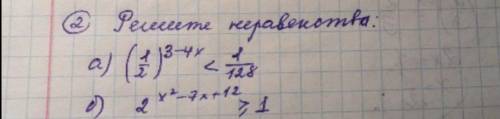 ② Решите неравенства:
а) (1/2)^(3-4x) < 1/128
б) 2^(x²-7x+12) ⩾ 1